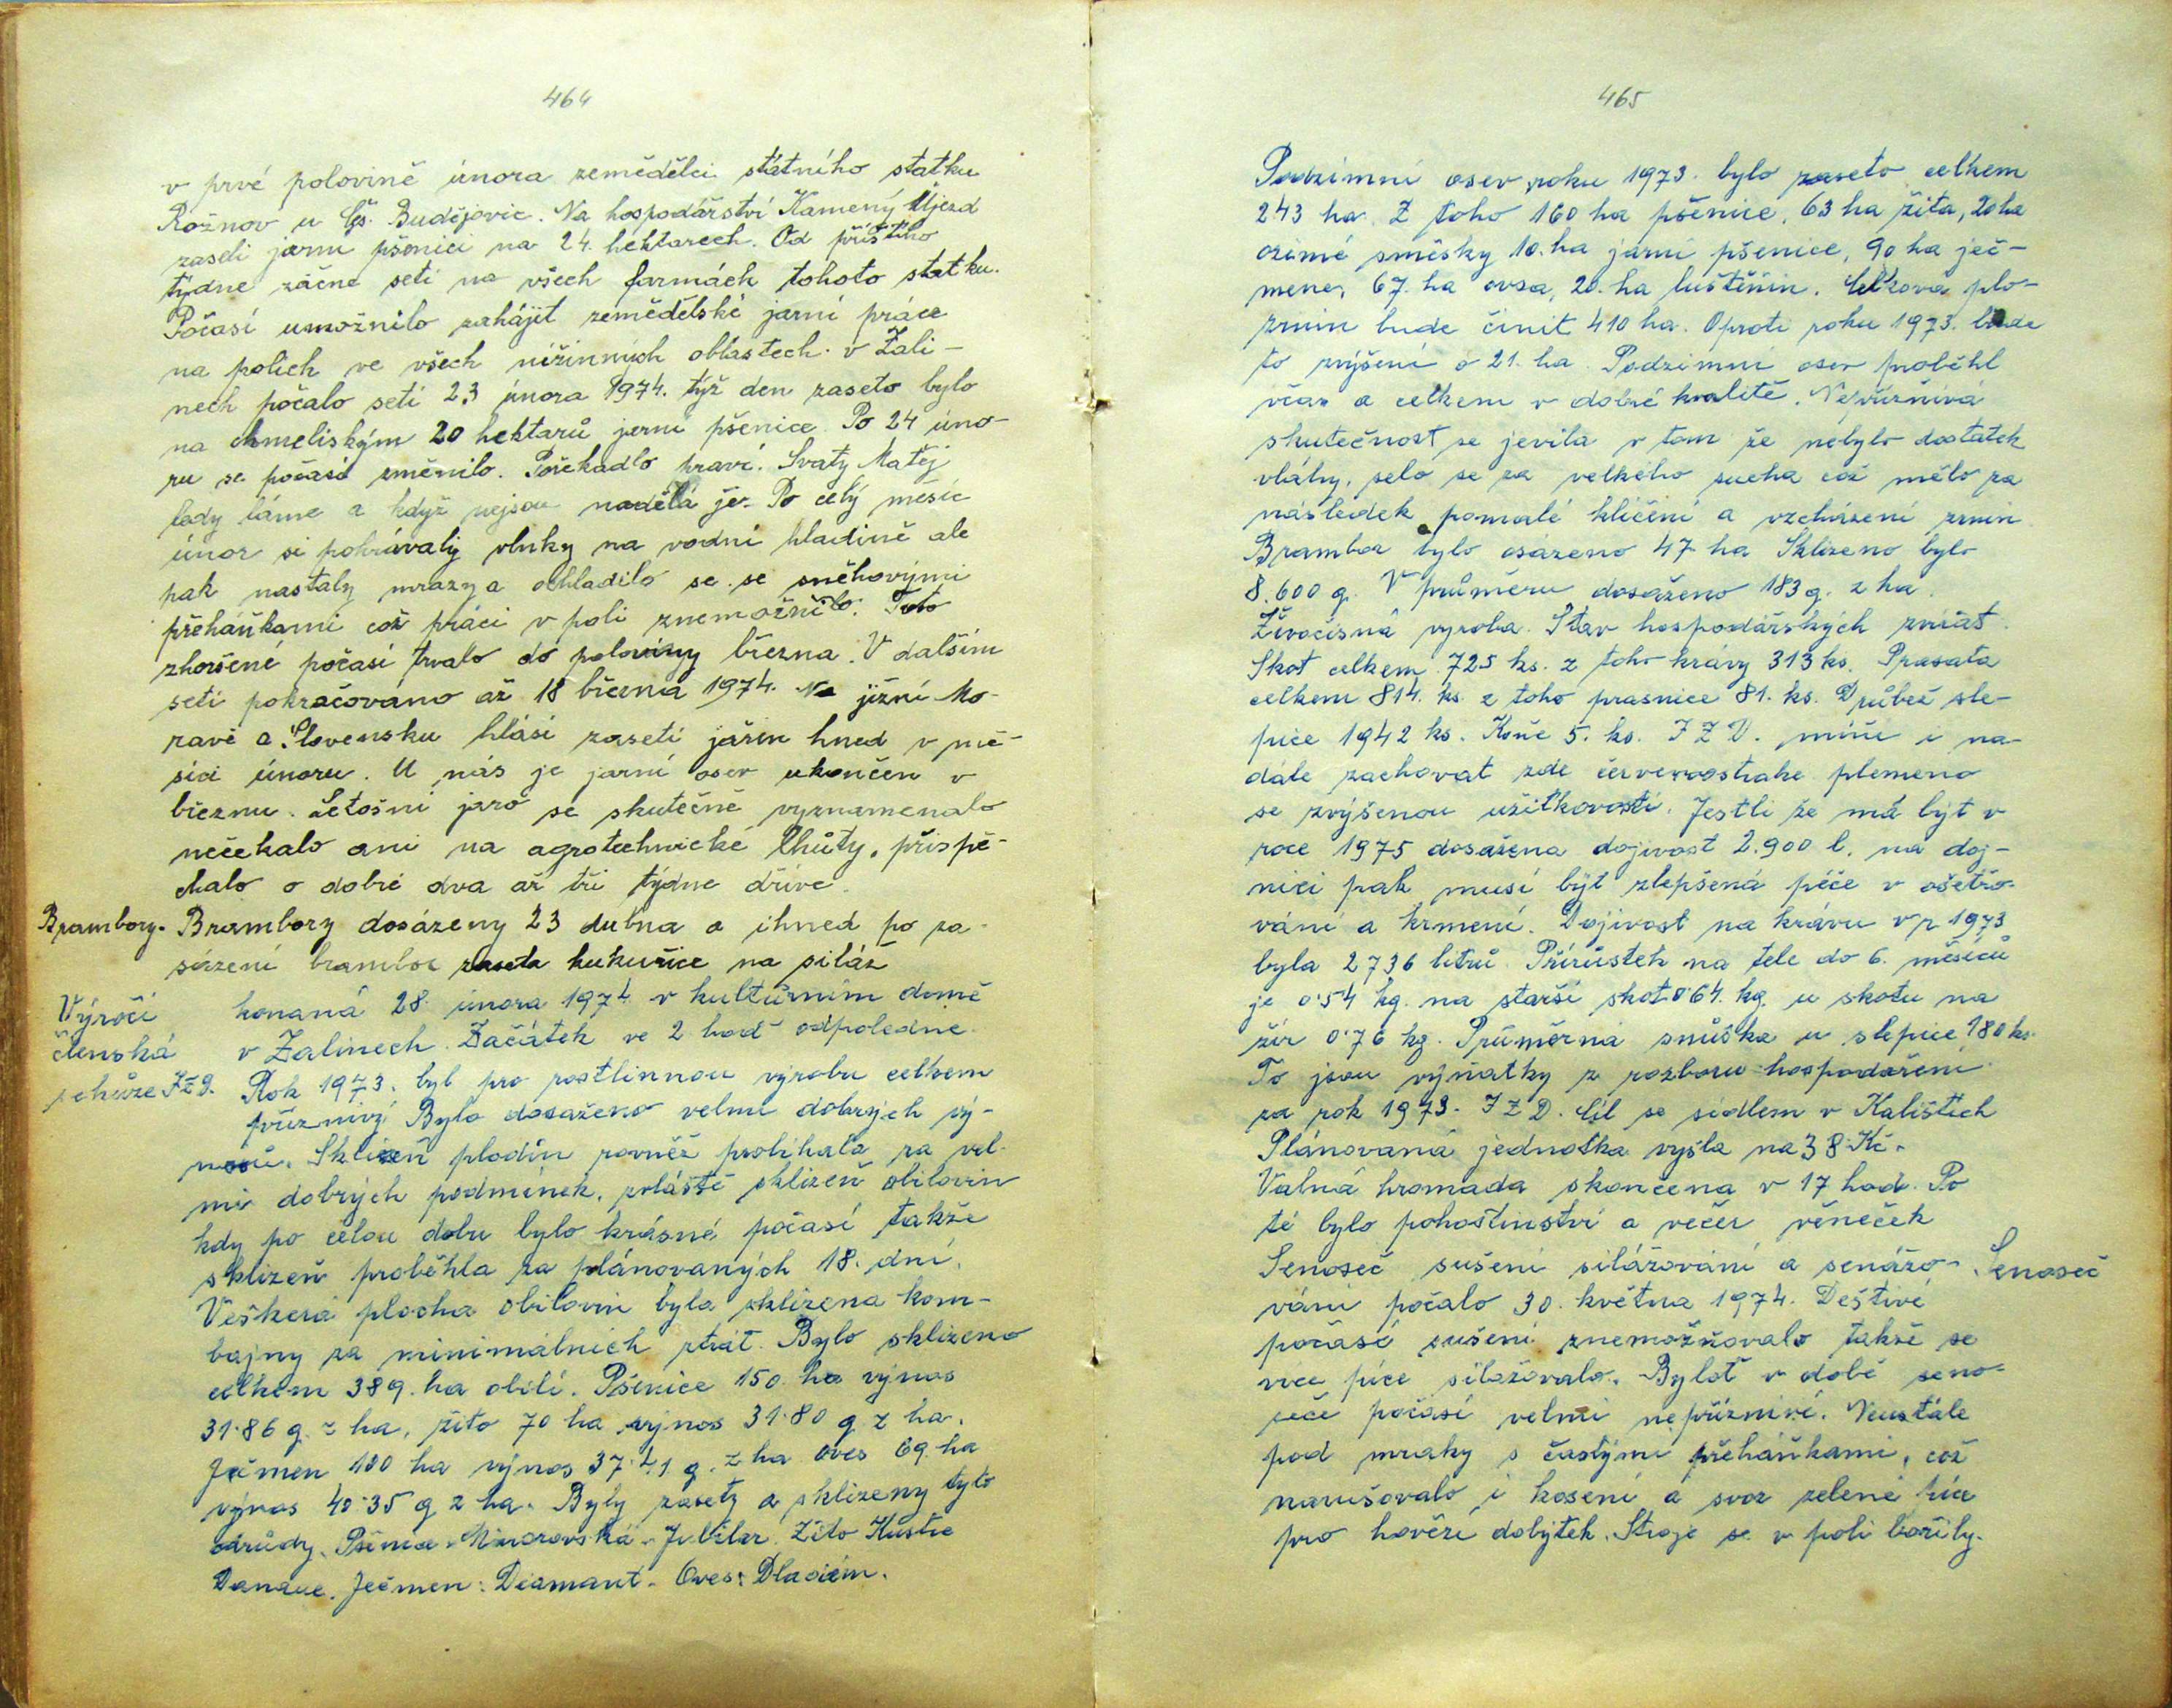 464
v prvé polovině února zemědělci státního statku
Rožnov u Čes. Budějovic. Na hospodářství Kamený Újezd
zaseli jarní pšenici na 24. hektarech. Od příštího
týdne začne setí na všech farmách tohoto statku.
Počasí umožnilo zahájit zemědělské jarní práce
na polích ve všech nížinných oblastech. v Žali-
nech počalo setí 23 února 1974. týž den zaseto bylo
na chmeliským 20 hektarů jarní pšenice. Po 24 úno-
ru se počasí změnilo. Pořekadlo praví. Svatý Matěj
ledy láme a když nejsou nadělá je. Po celý měsíc
únor si pohrávaly vlnky na vodní hladině ale
pak nastaly mrazy a ochladilo se se sněhovými
přeháňkami což práci v poli znemožnilo. Toto
zhoršené počasí trvalo do poloviny března. V dalším
setí pokračováno až 18 března 1974. Na jižní Mo-
ravě a Slovensku hlásí zasetí jařin hned v mě-
síci únoru. U nás je jarní osev ukončen v
březnu. Letošní jaro se skutečně vyznamenalo
nečekalo ani na agrotechnické lhůty, přispě-
chalo o dobré dva až tři týdne dříve.
Brambory. Brambory dosázeny 23 dubna a ihned po za-
sázení brambor zaseta kukuřice na siláž
Výročí konaná 28. února 1974 v kulturním domě
členská v Žalinech. Začátek ve 2 hod odpoledne.
schůze JZD. Rok 1973. byl pro rostlinnou výrobu celkem
příznivý Bylo dosaženo velmi dobrých vý-
nosů. Sklizeň plodin rovněž probíhala za vel-
mi dobrých podmínek, zvláště sklizeň obilovin
kdy po celou dobu bylo krásné počasí takže
sklizeň proběhla za plánovaných 18. dní.
Veškerá plocha obilovin byla sklizena kom-
bajny za minimálních ztrát. Bylo sklizeno
celkem 389. ha obilí. Pšenice 150 ha výnos
31·86 q. z ha, žito 70 ha výnos 31·80 q z ha.
Ječmen 100 ha výnos 37·41 q. z ha oves 69. ha
výnos 40·35 q z ha. Byly zasety a sklizeny tyto
odrůdy. Pšenice Mironovská. Jubilar. Žito Kustro
Danaue. Ječmen: Diamant. Oves:
465
Podzimní osev roku 1973. bylo zaseto celkem
243 ha. Z toho 160 ha pšenice, 63 ha žita, 20 ha
ozimé směsky 10. ha jarní pšenice, 90 ha ječ-
mene, 67. ha ovsa, 20. ha luštěnin. Celková plo-
zrnin bude činit 410 ha. Oproti roku 1973. bude
to zvýšení o 21. ha. Podzimní osev proběhl
včas a celkem v dobré kvalitě. Nepříznivá
skutečnost se jevila v tom že nebylo dostatek
vláhy, selo se za velkého sucha což mělo za
následek pomalé klíčení a vzcházení zrnin
Brambor bylo osázeno 47 ha Sklizeno bylo
8.600 q. V průměru dosaženo 183 q. z ha.
Živočisná vyroba. Stav hospodářských zvířat.
Skot celkem 725 ks. z toho krávy 313 ks. Prasata
celkem 814. ks. z toho prasnice 81. ks. Drůbež sle-
pice 1942 ks. Koně 5. ks. J Z D. míní i na-
dále zachovat zde červenostraké plemeno
se zvýšenou užitkovostí. Jestli že má být v
roce 1975 dosažena dojivost 2.900 l. na doj-
nici pak musí být zlepšená péče v ošetřo-
vání a krmení. Dojivost na krávu v r 1973
byla 2736 litrů. Přírůstek na tele do 6. měsíců
je 0·54 kg. na starší skot 0·64. kg. u skotu na
žír 0·76 kg. Průměrná snůška u slepice 180 ks.
To jsou výňatky z rozboru hospodaření
za rok 1973. J Z D. Cíl se sídlem v Kalištích
Plánovaná jednotka vyšla na 38 Kč.
Valná hromada skončena v 17 hod. Po
té bylo pohoštinství a večer věneček
Senoseč sušení silážování a senážo- Senoseč
vání počalo 30. května 1974. Deštivé
počasí sušení znemožňovalo takže se
více píce silažovalo. Byloť v době seno-
seče počasí velmi nepříznivé. Neustále
pod mraky s častými přeháňkami, což
narušovalo i kosení a svoz zelené píce
pro hovězí dobytek. Stroje se v poli bořily.